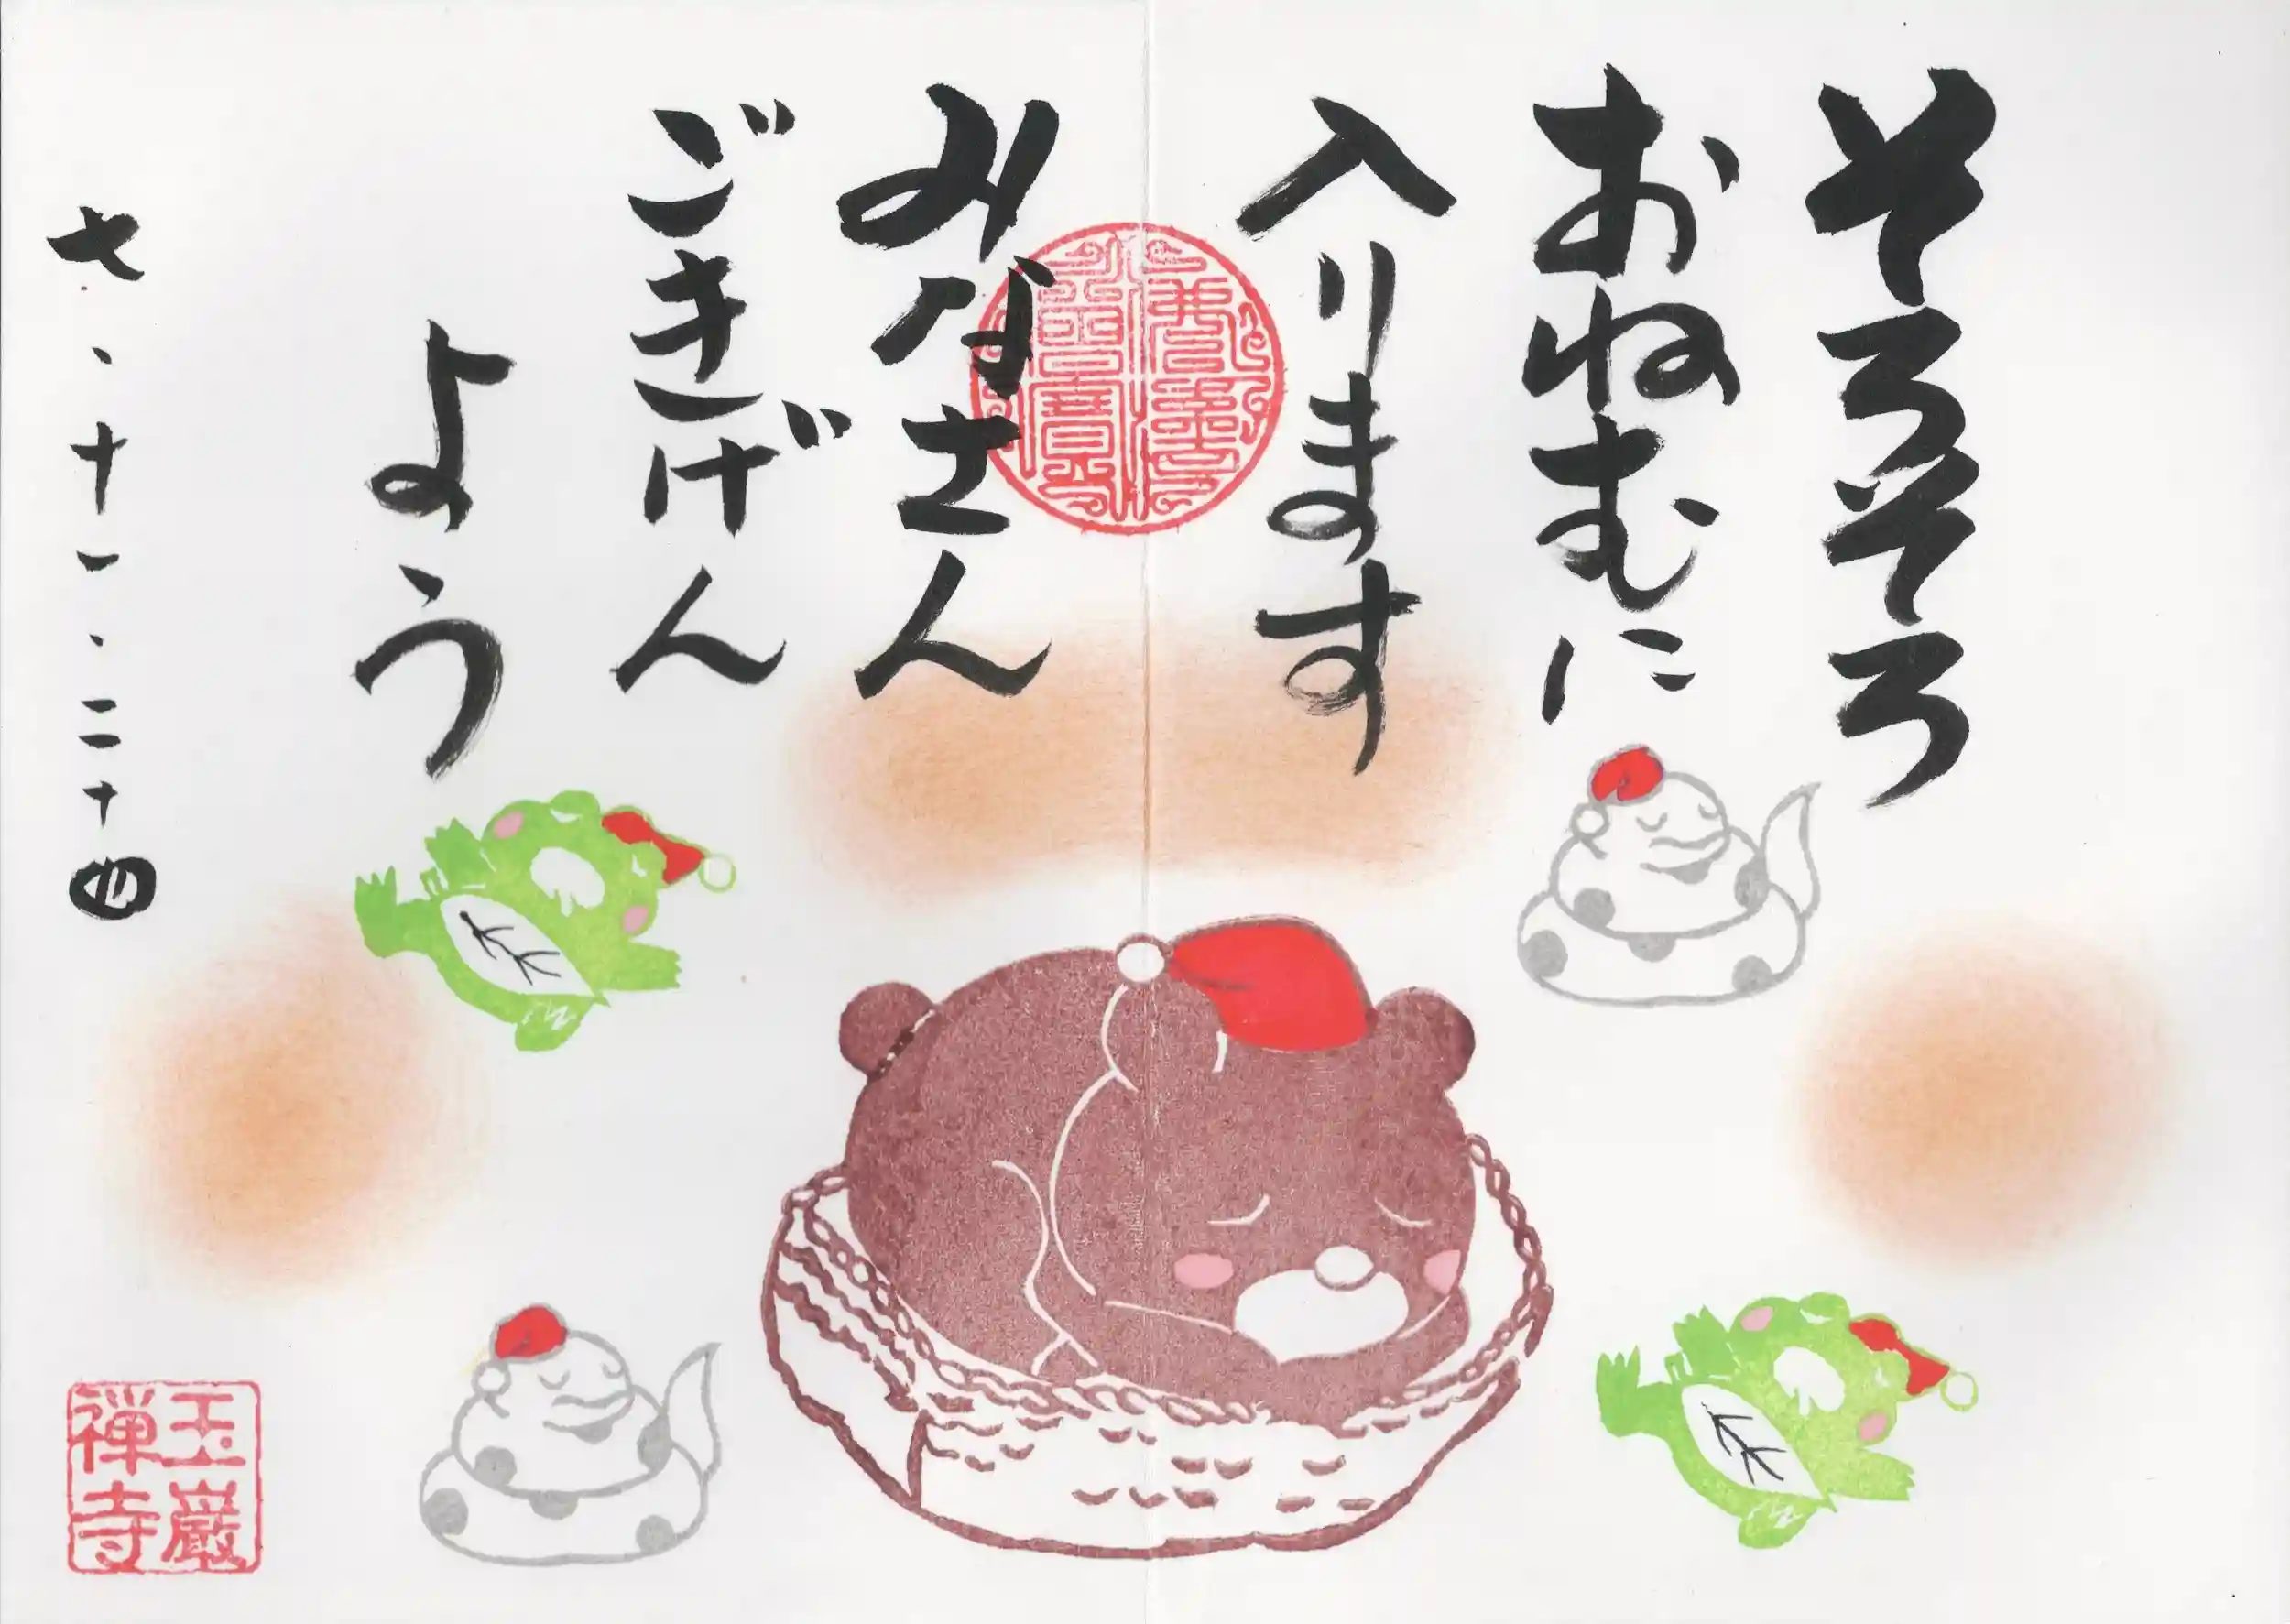 そろそろ
おねむに
入ります
みなさん
ごきげん
よう
七・十一・二十四
玉巌
禅寺